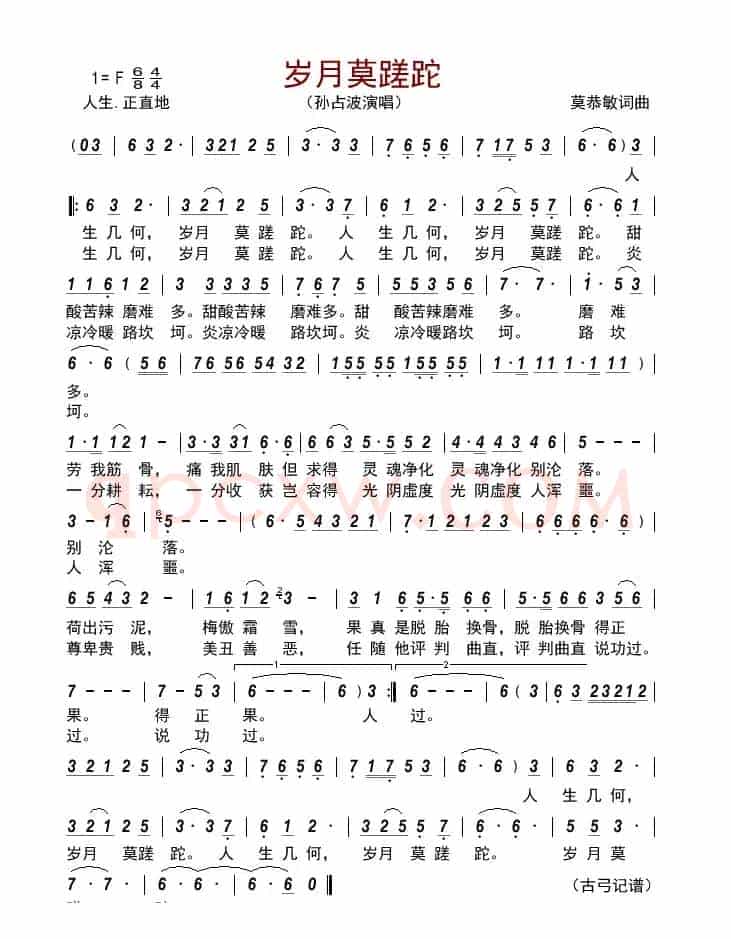 岁月莫蹉跎
1= F 6/8 4/4
人生.正直地 （孙占波演唱） 莫恭敏词曲
(03 | 6 3 2· | 3212 5 | 3·33 | 7656 | 7175 3 | 6·6)3 |
人
‖: 6 3 2· | 3212 5 | 3·37 | 6 1 2· | 32557 | 6·61 |
生几何， 岁月 莫蹉 跎。 人 生几何， 岁月 莫蹉跎。 甜
生几何， 岁月 莫蹉 跎。 人 生几何， 岁月 莫蹉跎。 炎
11612 | 3 3335 | 7675 | 55356 | 7·7· | 1·53 |
酸苦辣 磨难 多。甜酸苦辣 磨难多。甜 酸苦辣磨难 多。 磨 难
凉冷暖 路坎 坷。炎凉冷暖 路坎坷。炎 凉冷暖路坎 坷。 路 坎
6·6 (56 | 7656 5432 | 155155 155155 | 1·111 1·111) |
多。
坷。
1·1 12 1- | 3·3 31 6·6 | 66 3 5·5 52 | 4·4 43 6 | 5--- |
劳 我筋 骨， 痛 我肌 肤但 求得 灵 魂净化 灵 魂净化 别沦 落。
一 分耕 耘， 一 分收 获岂 容得 光 阴虚度 光 阴虚度 人浑 噩。
3-16 | 5--- | (6·5 4321 | 7·1 2123 | 6666·6) |
别 沦 落。
人 浑 噩。
65432- | 1612 3- | 3 1 65·5 66 | 5·566 356 |
荷出污 泥， 梅傲 霜 雪， 果 真 是脱 胎 换骨，脱 胎换骨 得正
尊卑贵 贱， 美丑 善 恶， 任 随 他评 判 曲直，评 判曲直 说功过。
1 2
7--- | 7-53 | 6--- | (6)3· :‖ 6--- | 6(3 | 6323212 |
果。 得 正 果。 人 过。
过。 说 功 过。
32125 | 3·33 | 7656 | 7175 3 | 6·6)3 | 632· |
人 生 几 何，
3212 5 | 3·37 | 612· | 32557 | 6·6· | 6·356 |
岁月 莫蹉 跎。 人 生 几何， 岁月 莫蹉 跎。 岁 月 莫
7·7· | 6·6· | 6·60 ‖ （古弓记谱）
qpcxw.com